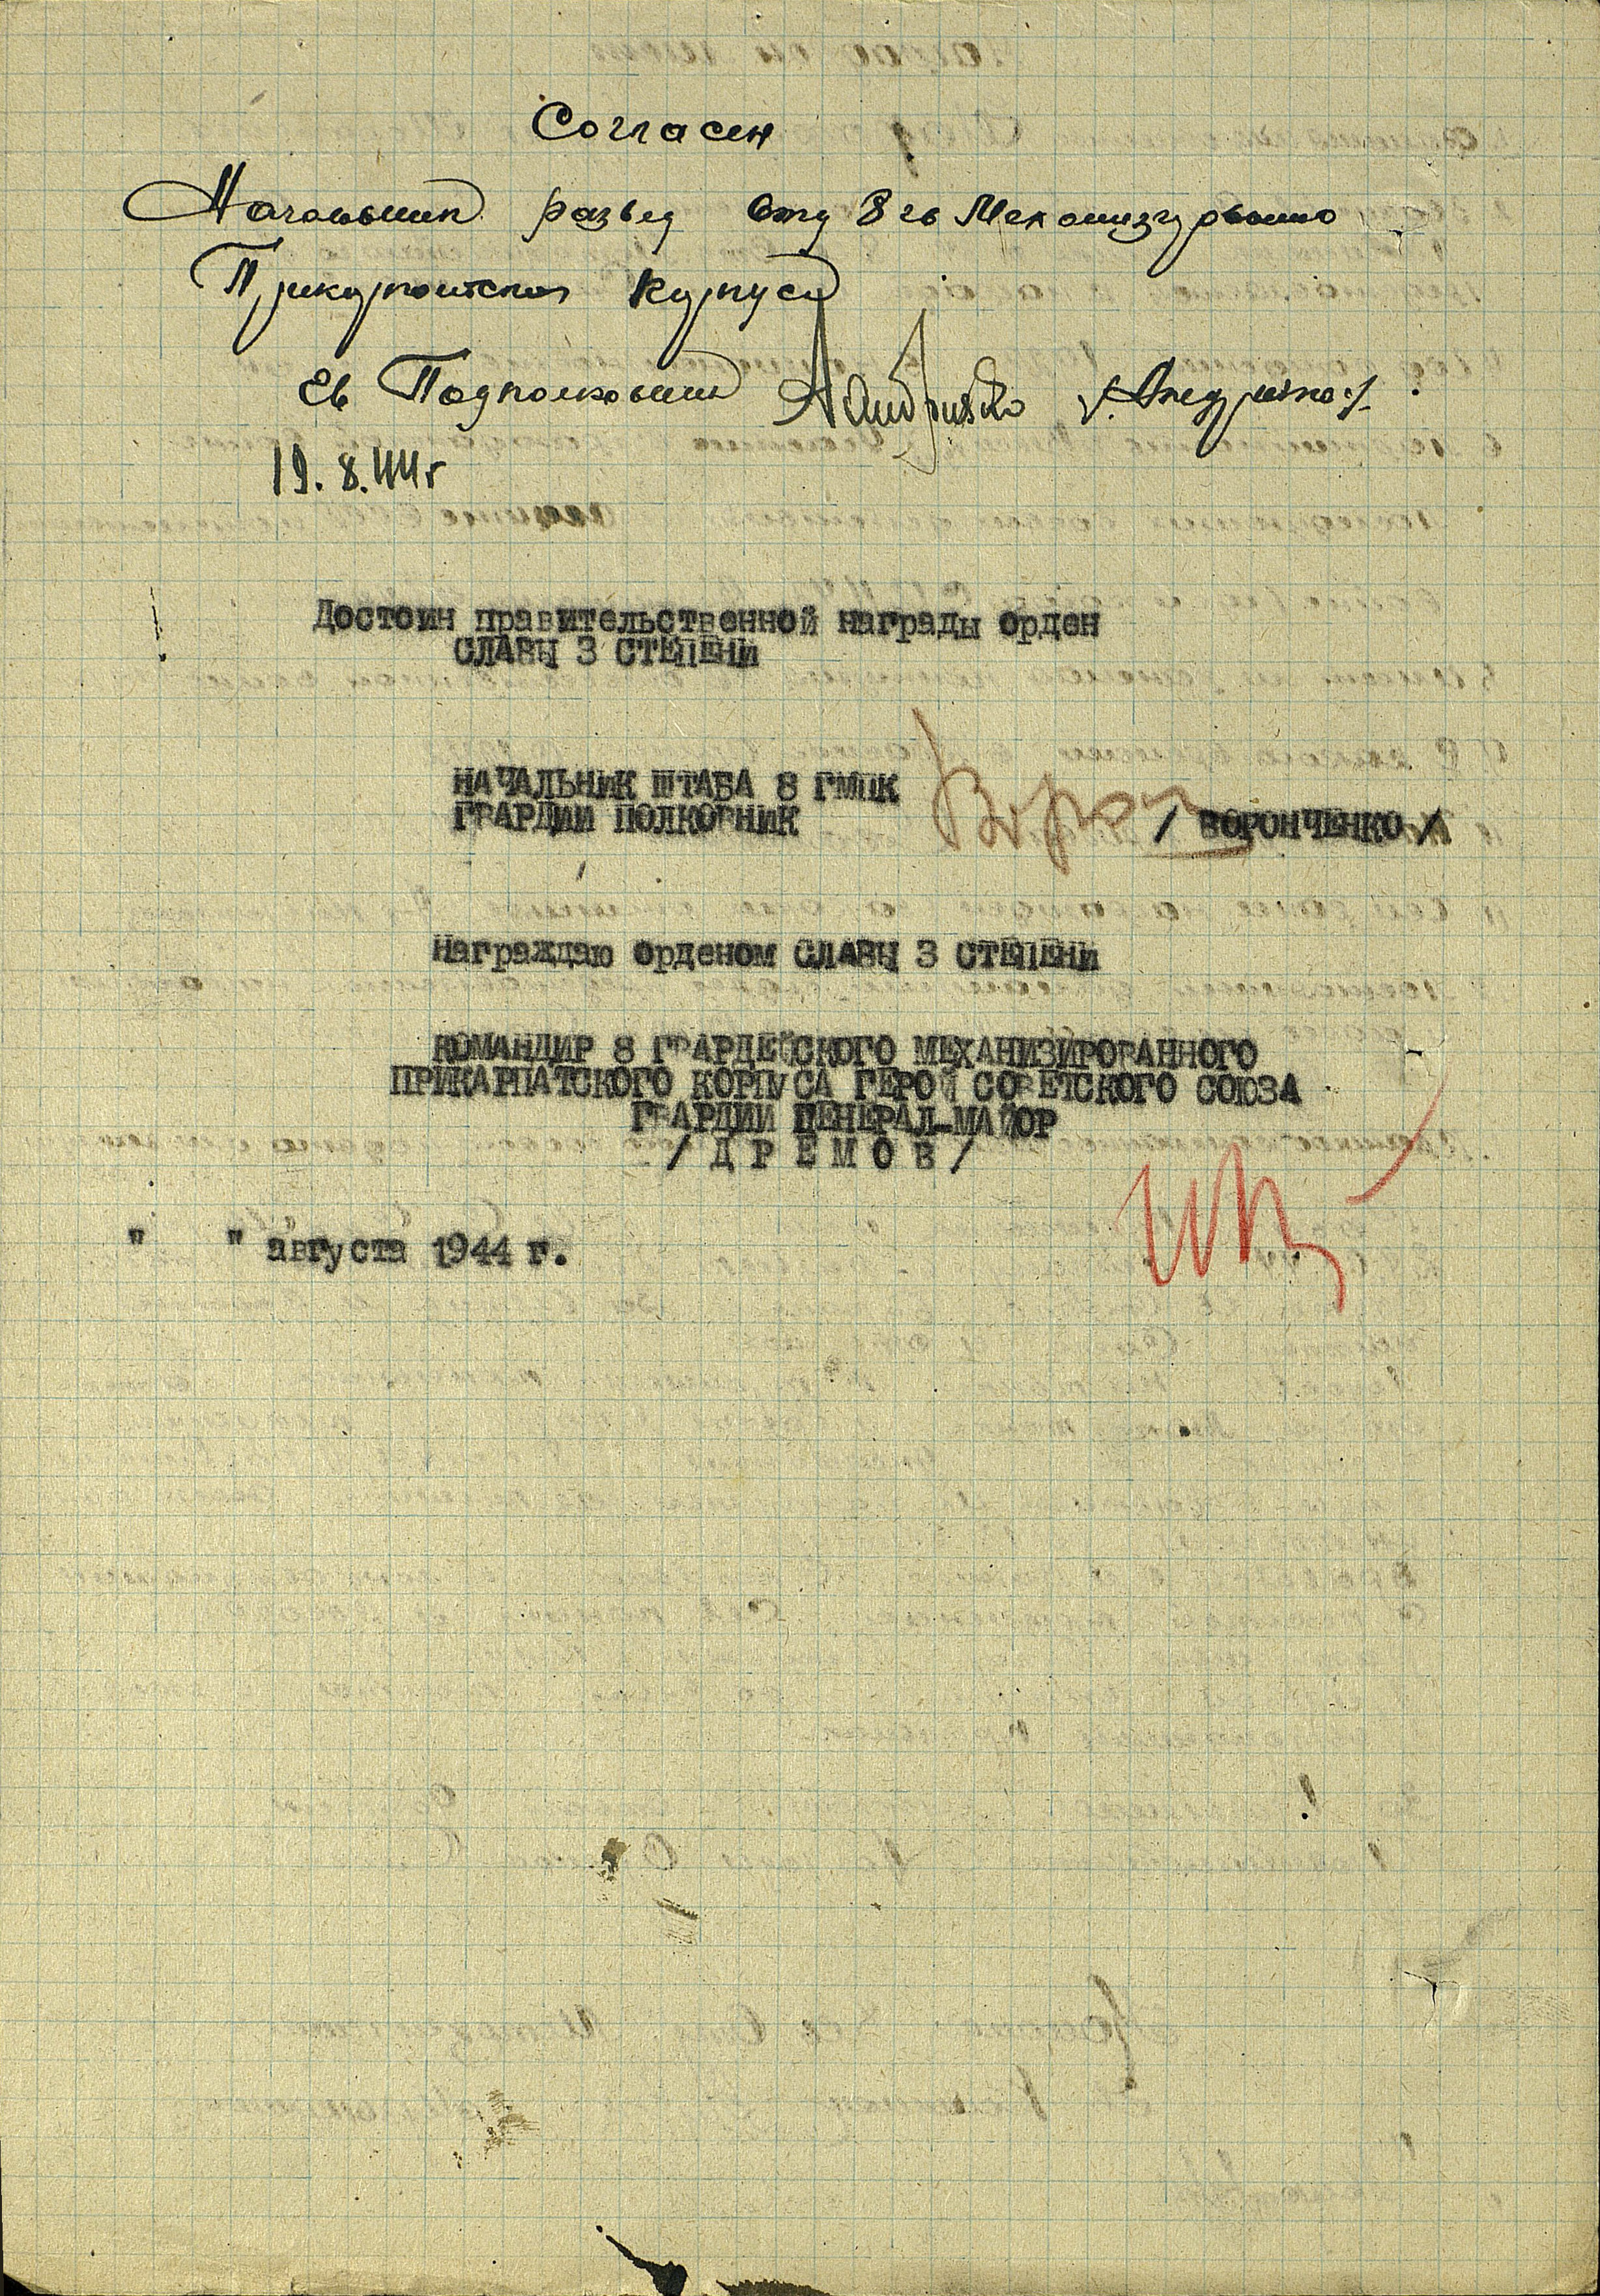 Согласен
Начальник развед отд 8 гв Механизировано
Прикарпатского Корпуса
гв Подполковник /Андрияко/.
19.8.44г
Достоин правительственной награды орден
СЛАВЫ 3 СТЕПЕНИ
НАЧАЛЬНИК ШТАБА 8 ГМПК
ГВАРДИИ ПОЛКОВНИК / ВОРОНЧЕНКО /
Награждаю орденом СЛАВЫ 3 СТЕПЕНИ
КОМАНДИР 8 ГВАРДЕЙСКОГО МЕХАНИЗИРОВАННОГО
ПРИКАРПАТСКОГО КОРПУСА ГЕРОЙ СОВЕТСКОГО СОЮЗА
ГВАРДИИ ГЕНЕРАЛ-МАЙОР
/ Д Р Ё М О В /
" " августа 1944 г.